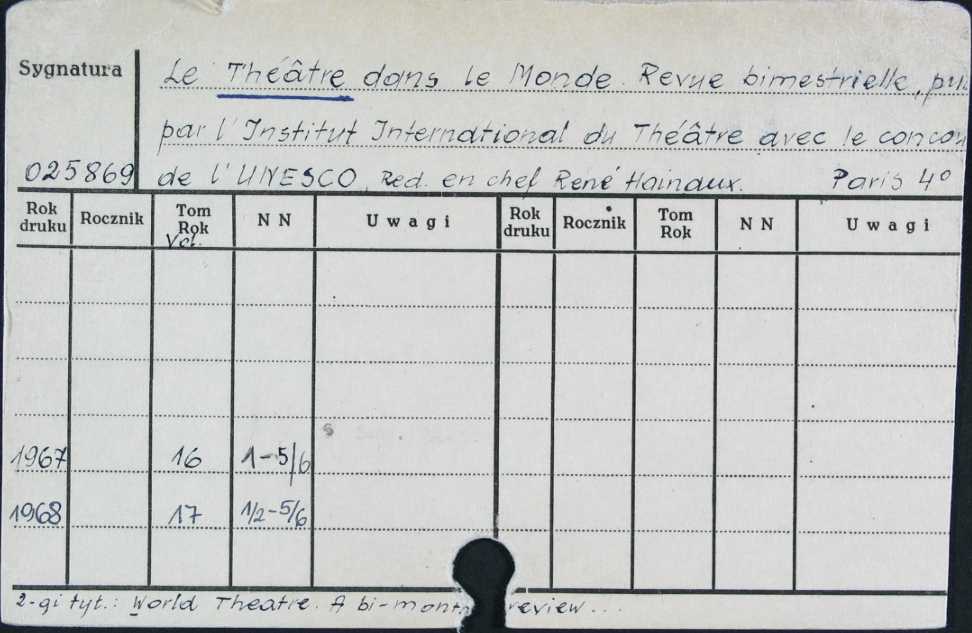 Sygnatura
Le Théâtre dans le Monde. Revue bimestrielle,
par l'Institut International du Théâtre avec le
025869 de l'UNESCO. Red. en chef René Hainaux. Paris 4°
Rok druku Rocznik Tom Rok Vol. NN Uwagi Rok druku Rocznik Tom Rok NN Uwagi
1967 16 1-5/6
1968 17 1/2-5/6
2-gi tyt.: World Theatre. A bi-month review...